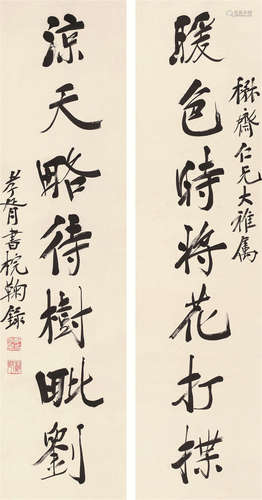 暖色時將花打揲
楙齋仁兄大雅属
涼天略待樹毗劉
孝胥書梡鞠錄